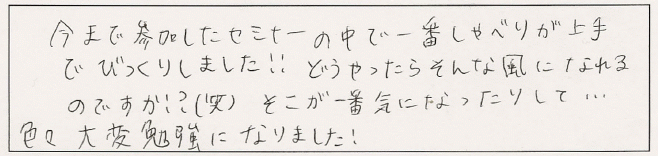 今まで参加したセミナーの中で一番しゃべりが上手
でびっくりしました!! どうやったらそんな風になれる
のですか!?(笑) そこが一番気になったりして…
色々大変勉強になりました!